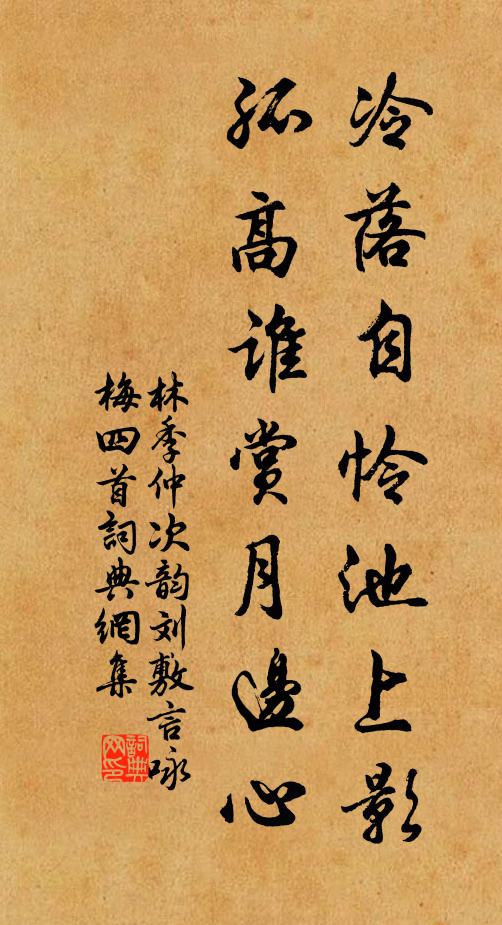 冷落自怜池上影
孤高谁赏月邊心
林季仲次韵刘敷言咏
梅四首詞典網集
詞典
网印